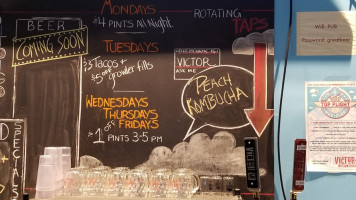 BEER
COMING SOON
MONDAYS
$4 PINTS All Night
TUESDAYS
$3 Tacos +
growler fills
WEDNESDAYS
THURSDAYS
FRIDAYS
$1 off
PINTS 3-5 PM
ROTATING
TAPS
VICTOR
ASK ME
PEACH
KOMBUCHA
SPECIALS
Wifi: PUB
Password: greatbeer
TOP FLIGHT
VICTOR